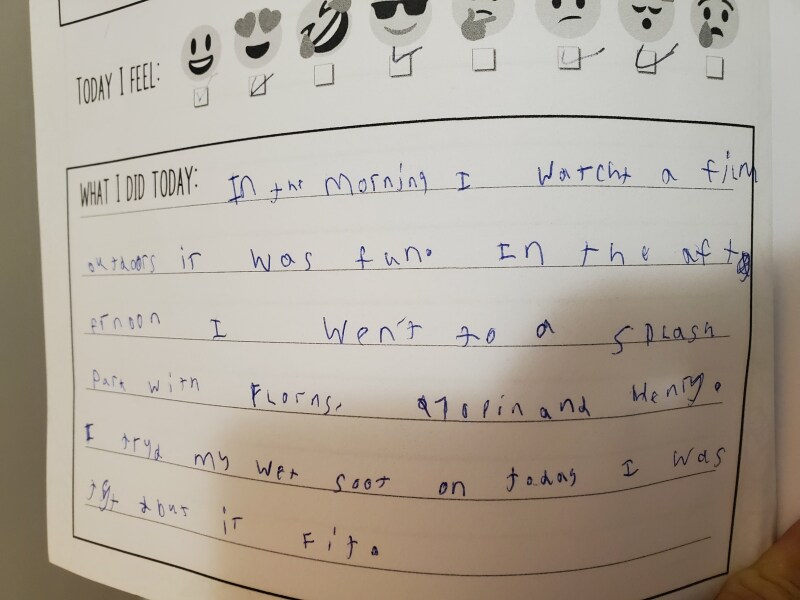 TODAY I FEEL:
WHAT I DID TODAY: In the Morning I Watcht a film
outdoors it was fun. In the aft
ernoon I Wen't to a SPLash
Park with and Henry.
I tryd my wet soot on today I was
but it Fit.